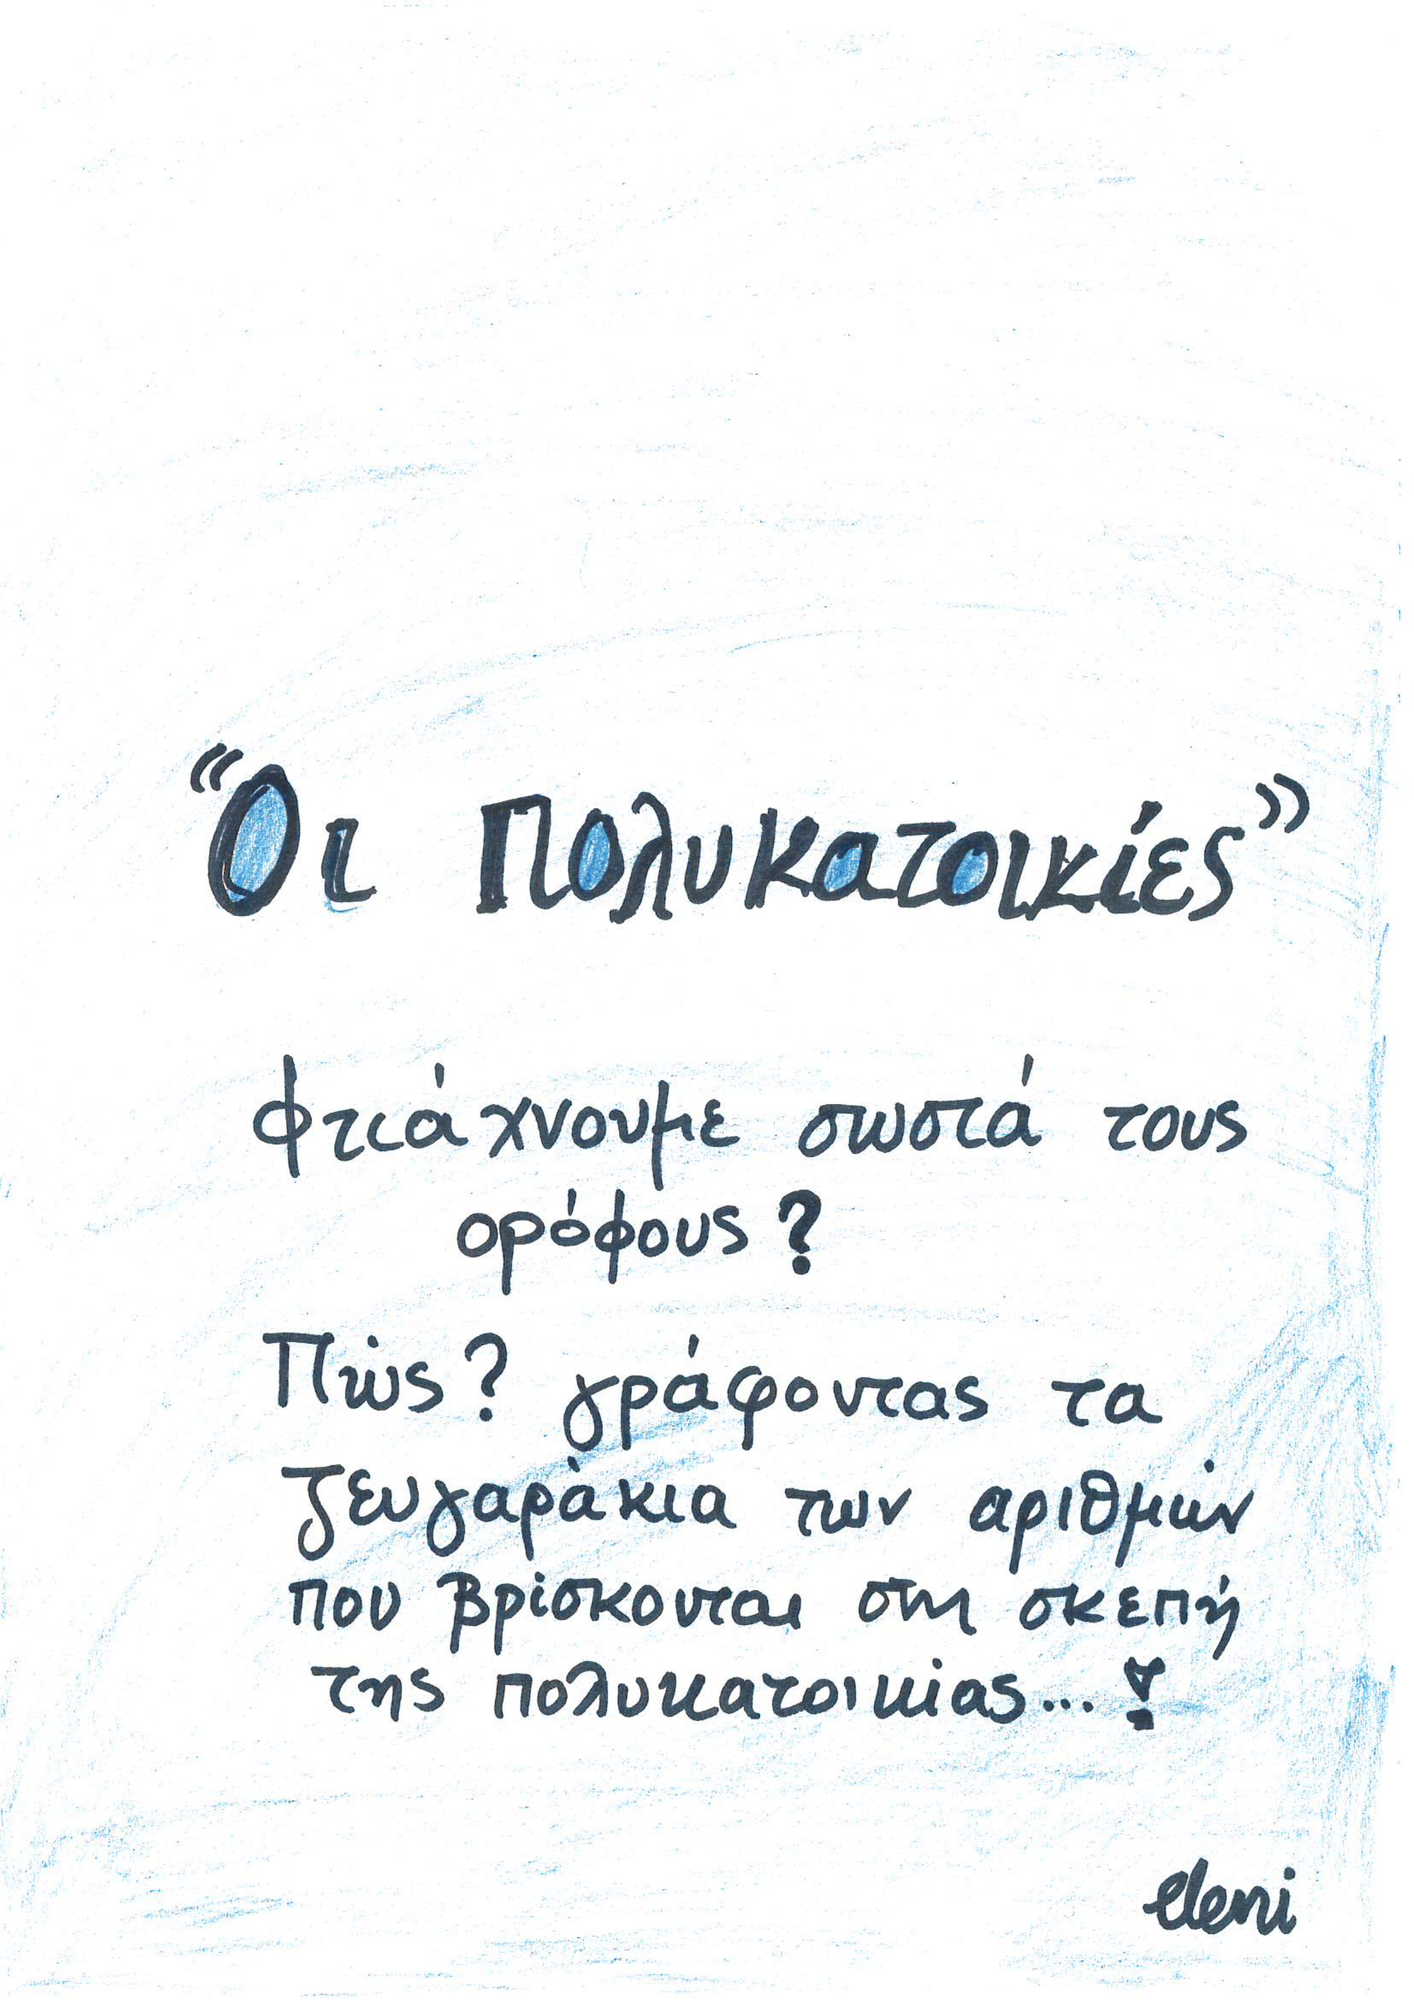 “Οι Πολυκατοικίες”
Φτιάχνουμε σωστά τους
ορόφους?
Πώς? γράφοντας τα
ζευγαράκια των αριθμών
που βρίσκονται στη σκεπή
της πολυκατοικίας...!
eleni